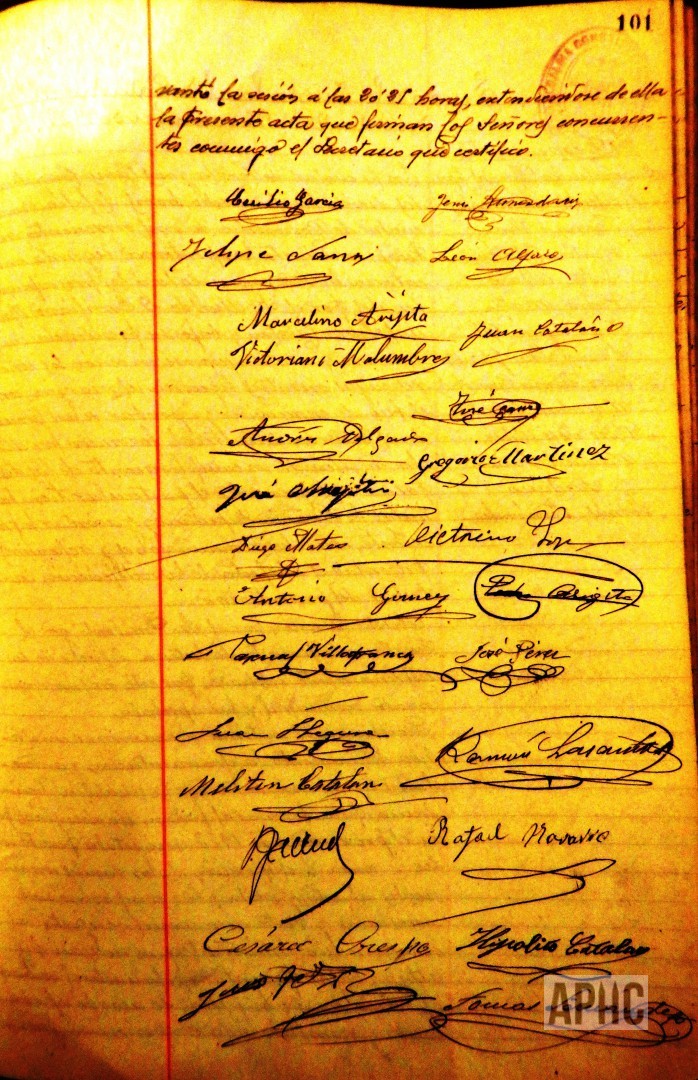 101
vantó la sesión á las 20'35 horas, extendiendose de ella
la presente acta que firman los Señores concurren-
tes conmigo el Secretario que certifico.
Cecilio Garcia
Felipe Sanz León Alfaro
Marcelino Arigita
Juan Catalán
Victoriano Malumbres
José
Andrés Delgado
Gregorio Martinez
José Arigita
Diego Mateo Victorino
Antonio Gomez Pedro Arigita
Pascual Villafranca José Pérez
Juan
Ramón Lasanta
Meliton Catalán
Rafael Navarro
Cesáreo Crespo Hipolito Catalan
Tomás
APHC